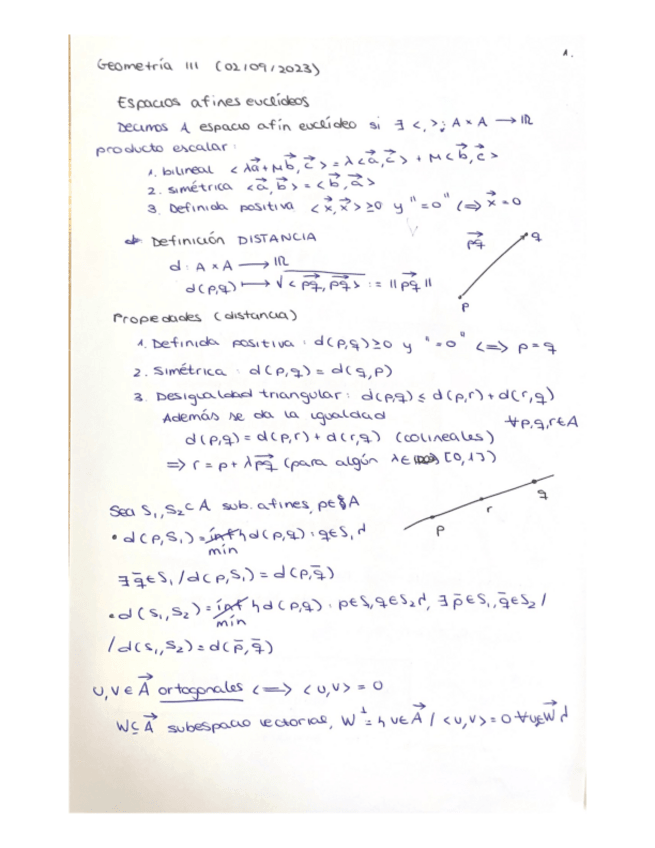 1.
Geometría III (02/09/2023)
Espacios afines euclídeos
Decimos A espacio afín euclídeo si ∃ <,>: A × A → ℝ
producto escalar:
1. bilineal <λa⃗+μb⃗, c⃗> = λ<a⃗,c⃗> + μ<b⃗,c⃗>
2. simétrica <a⃗,b⃗> = <b⃗,a⃗>
3. Definida positiva <x⃗,x⃗> ≥0 y "=0" ⟺ x⃗=0
Definición DISTANCIA
d: A × A → ℝ
d(p,q) ⟼ √<pq⃗, pq⃗> := ||pq⃗||
pq⃗
q
p
Propiedades (distancia)
1. Definida positiva: d(p,q)≥0 y "=0" <=> p=q
2. Simétrica: d(p,q) = d(q,p)
3. Desigualdad triangular: d(p,q) ≤ d(p,r) + d(r,q)
Además se da la igualdad ∀p,q,r∈A
d(p,q) = d(p,r) + d(r,q) (colineales)
=> r = p + λpq⃗ (para algún λ∈ [0,1])
p r q
Sea S₁, S₂ ⊂ A sub. afines, p∈A
• d(p,S₁) = ínf {d(p,q) : q∈S₁}
mín
∃ q̄∈S₁ / d(p,S₁) = d(p,q̄)
• d(S₁,S₂) = ínf {d(p,q) : p∈S, q∈S₂}, ∃ p̄∈S₁, q̄∈S₂ /
mín
/ d(S₁,S₂) = d(p̄,q̄)
u,v ∈ A⃗ ortogonales <=> <u,v> = 0
W⊆A⃗ subespacio vectorial, W^⊥ = {v∈A⃗ / <u,v> = 0 ∀u∈W⃗}